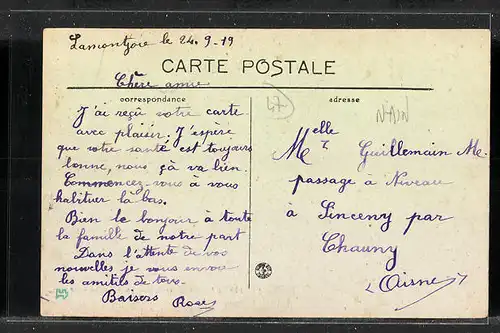 Lamontjoie le 24.9-19
CARTE POSTALE
Chère amie
correspondance
adresse
47
J'ai reçu votre carte
avec plaisir. J'espère
que votre santé est toujours
bonne, nous ça va bien.
Commencez-vous a vous
habituer là bas.
Bien le bonjour à toute
la famille de notre part
Dans l'attente de vos
nouvelles je vous envoie
les amitiés de tous.
Baisers Rose
Melle Guillemain M.
passage à Niveau
à Sinceny par
Chauny
(Aisne)